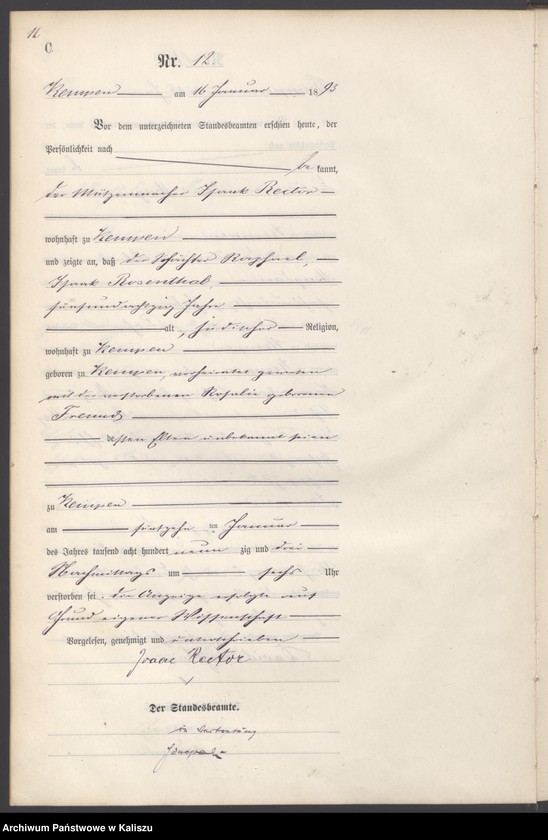 16
C.
Nr. 12.
Kempen am 16 Januar 1893
Vor dem unterzeichneten Standesbeamten erschien heute, der
Persönlichkeit nach
be kannt,
der Mützenmacher Isaak Rector
wohnhaft zu Kempen
und zeigte an, daß der Schächter Raphael,
Isaak Rosenthal,
fünfundachtzig Jahre
alt, jüdischer Religion,
wohnhaft zu Kempen
geboren zu Kempen, verheiratet gewesen
mit der verstorbenen Rosalie geborenen
Freund
dessen Eltern unbekannt seien
zu Kempen
am fünfzehn ten Januar
des Jahres tausend acht hundert neun zig und drei
Nachmittags um sechs Uhr
verstorben sei. Die Anzeige erfolgte auf
Grund eigener Wissenschaft
Vorgelesen, genehmigt und unterschrieben
Isaac Rector
Der Standesbeamte.
in Vertretung
Archiwum Państwowe w Kaliszu